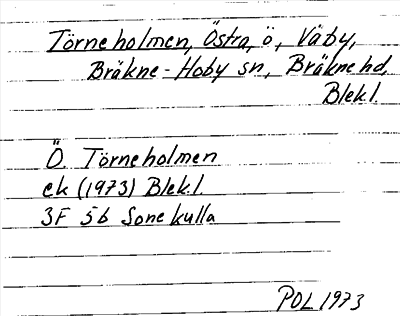 Törneholmen, Östra, ö, Väby,
Bräkne-Hoby sn, Bräkne hd,
Blek.l.
Ö. Törneholmen
ek (1973) Blek.l.
3F 5b Sonekulla
POL 1973